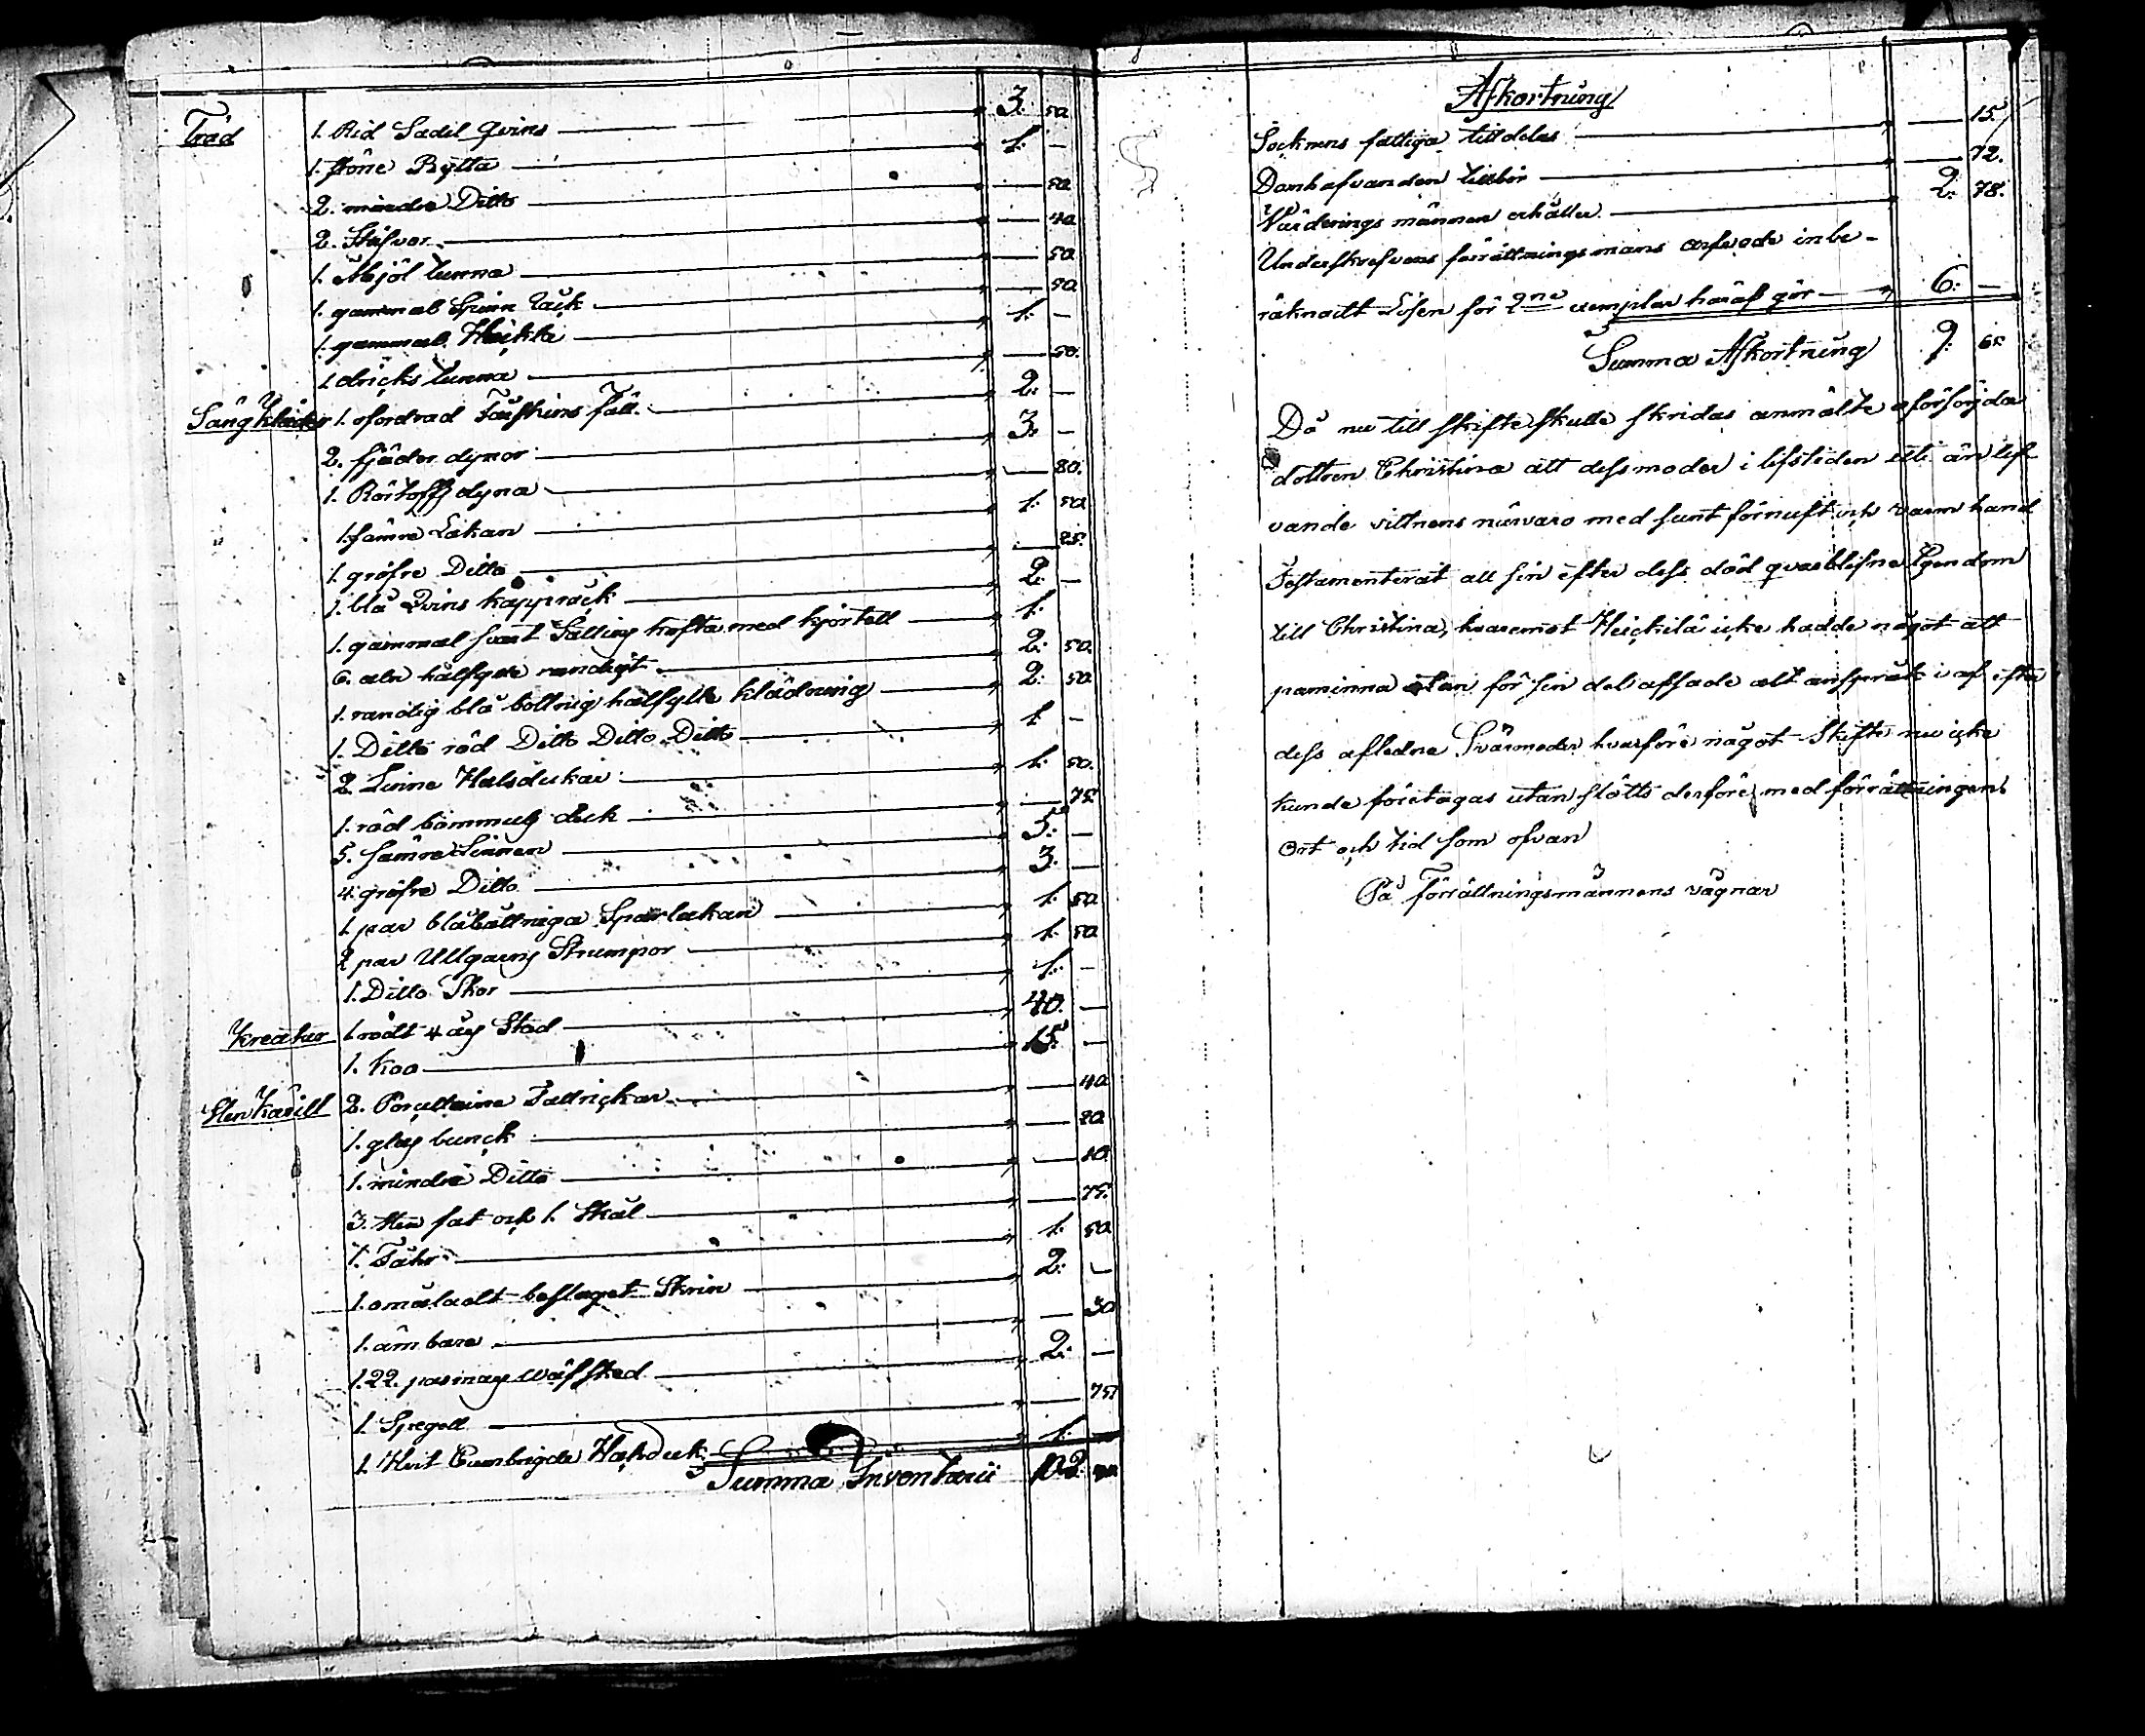 Träd 1. Rid Sadel Qvins 3: 50
1. större Bytta 1: —
2. mindre Ditto — 50
2. Stäfvor — 40
1. Mjöl tunna — 50
1. gammal Spinn Råck — 50
1. gammal Häckla 1: —
1. dricks tunna — 50.
Sängkläder 1. ofordrad Fårskins Fäll. 2: —
2. fjäder dynor 3: —
1. Rörtoffs dyna — 80.
1. sämre Lakan 1: 50
1. gröfre Ditto — 25.
1. blå Qvins kappråck 2: —
1. gammal svart Sälling kofta med kjortell 1:
6. aln halfylle randigt 2: 50.
1. randig blå bottnig halfylle klädning 2: 50
1. Ditto röd Ditto Ditto Ditto 1: —
2. Linne Halsdukar 1: 50.
1. röd bommulls duk — 75.
5. sämre Linnen 5: —
4. gröfre Ditto 3: —
1. par blåbåttniga Sparlakan 1: 50
2 par Ullgarns Strumpor 1: 50
1. Ditto Skor 1: —
Kreatur 1. rödt 4 års Stod 40. —
1. Koo 15: —
Sten Kärill 2. Porcellaine Tallrickar — 40
1. glas bunck — 20
1. mindre Ditto — 10.
3. sten fat och 1. Skål — 75.
1. Fåhr 1: 50
1. omåladt beslaget Skrin 2: —
1. ämbare — 30
1. 22. pasmas wäfsked 2: —
1. Spegell — 75
1. Hvit Cambrigde Halsduk 1: —
Summa Inventarii 102:
Afkortning
Socknens fattiga tilldelas — 15.
Danhafvanden tillbör — 72.
Wärderings männen erhåller 2: 78.
Underskrefvens förrättningsmans arfvode inbe-
räknadt Lösen för 2ne exemplar häraf gör 6: —
Summa Afkortning 9: 65
Då nu till skifte skulle skridas anmälte oförsörjda
dottren Christina att dess moder i lifstiden uti än lef
vande vittnens närvaro med sunt förnuft och varm hand
Testamenterat all sin efter dess död qvarblifne Egendom
till Christina, hvaremot Heickilä icke hadde något att
påminna utan för sin del afsade alt anspråk af efter
dess aflledne Svärmoder hvarföre något Skifte nu icke
kunde företagas utan slöts derföre med förrättningen
Ort och tid som ofvan
På Förrättningsmännens vägnar